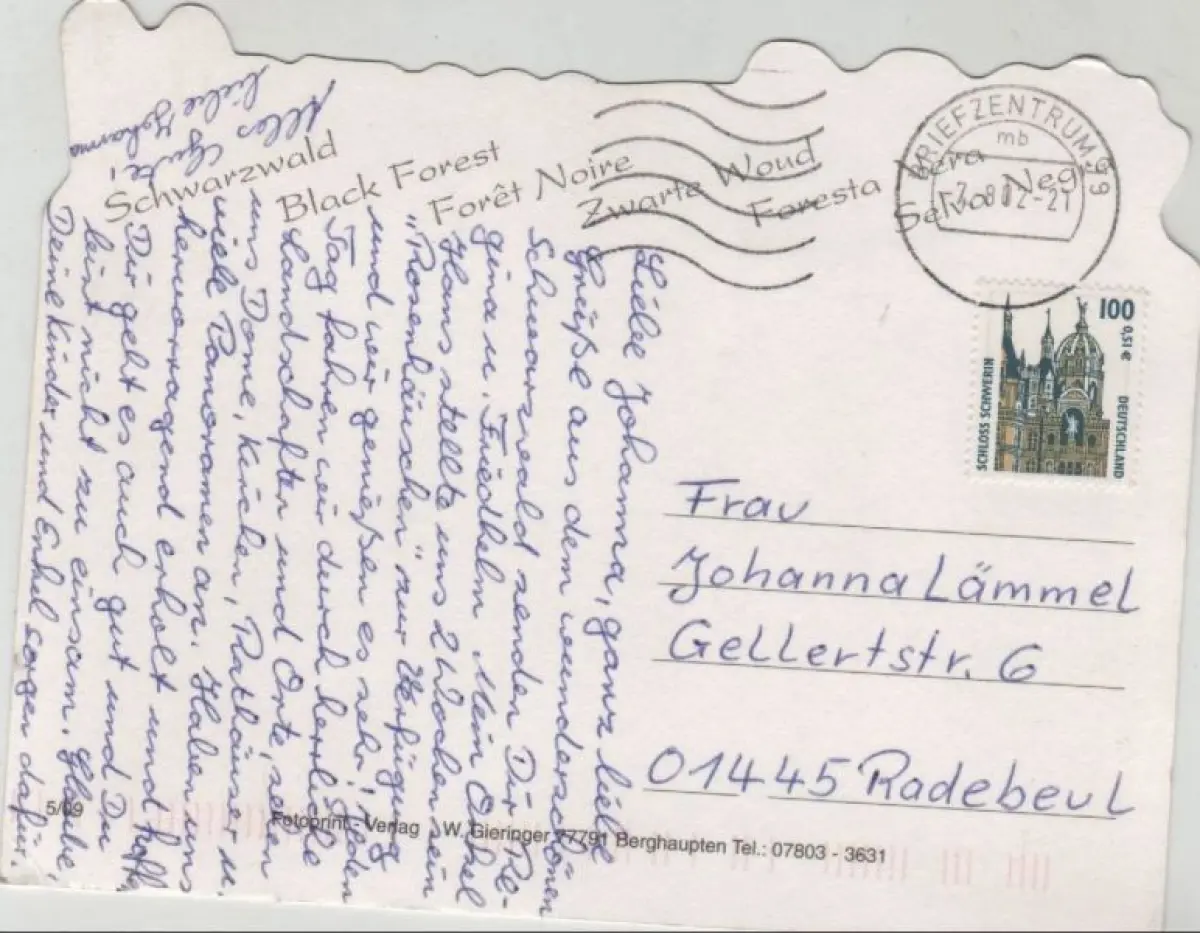 Schwarzwald
Black Forest
Forêt Noire
Zwarte Woud
Foresta Nera
Selva Negra
BRIEFZENTRUM 99
mb
100
0,51 €
SCHLOSS SCHWERIN
DEUTSCHLAND
Frau
Johanna Lämmel
Gellertstr. 6
01445 Radebeul
Liebe Johanna, ganz liebe
Grüße aus dem wunderschönen
Schwarzwald senden Dir Re-
gina u. Friedhelm. Mein Onkel
Hans stellte uns 2 Wochen sein
"Rosenhäuschen" zur Verfügung
und wir genießen es sehr! Jeden
Tag fahren wir durch herrliche
Landschaften und Orte, sehen
uns Dome, Kirchen, Rathäuser u.
viele Panoramen an. Haben uns
hervorragend erholt und hoffe,
Dir geht es auch gut und Du
bist nicht zu einsam. Glaube,
Deine Kinder und Enkel sorgen dafür.
Alles Gute,
liebe Johanna
5/99
Fotoprint - Verlag W. Gieringer 77791 Berghaupten Tel.: 07803 - 3631